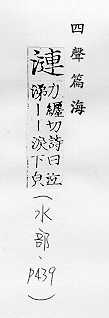 四聲篇海
漣
力纏切詩曰泣
涕｜｜淚下皃
(水部、P439)